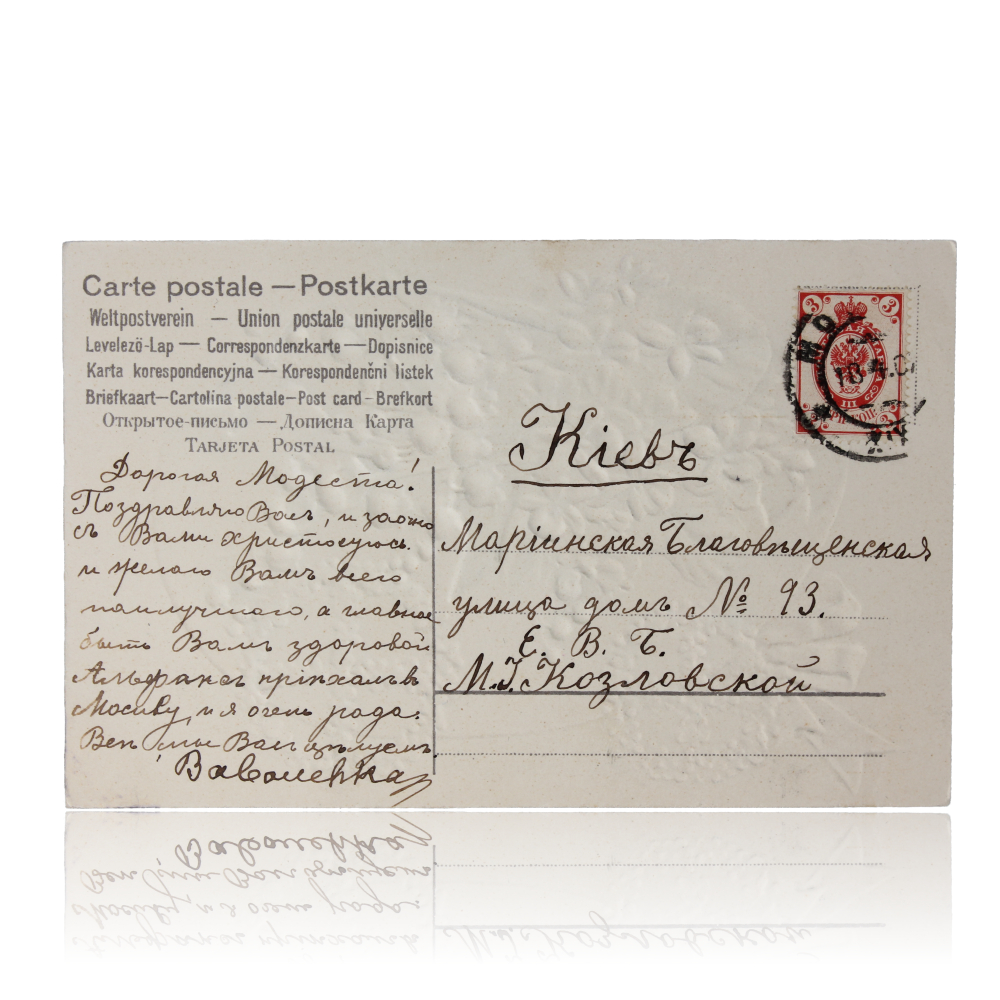 Carte postale — Postkarte
Weltpostverein — Union postale universelle
Levelező-Lap — Correspondenzkarte — Dopisnice
Karta korespondencyjna — Korespondenční listek
Briefkaart — Cartolina postale — Post card - Brefkort
Открытое-письмо — Дописна Карта
Tarjeta Postal
3 3
Кіевъ
Маріинская Благовѣщенская
улица домъ № 93.
Е. В. Б.
М. І. Козловской
Дорогая Модеста!
Поздравляю Васъ, и заочно
съ Вами христосуюсь
и желаю Вамъ всего
наилучшаго, а главное
быть Вамъ здоровой
пріѣхалъ въ
Москву, и я очень рада.
Всѣ мы Васъ цѣлуемъ